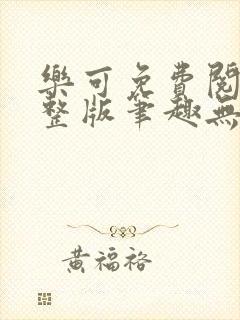 樂可免費閱
整版筆趣無
黃福裕